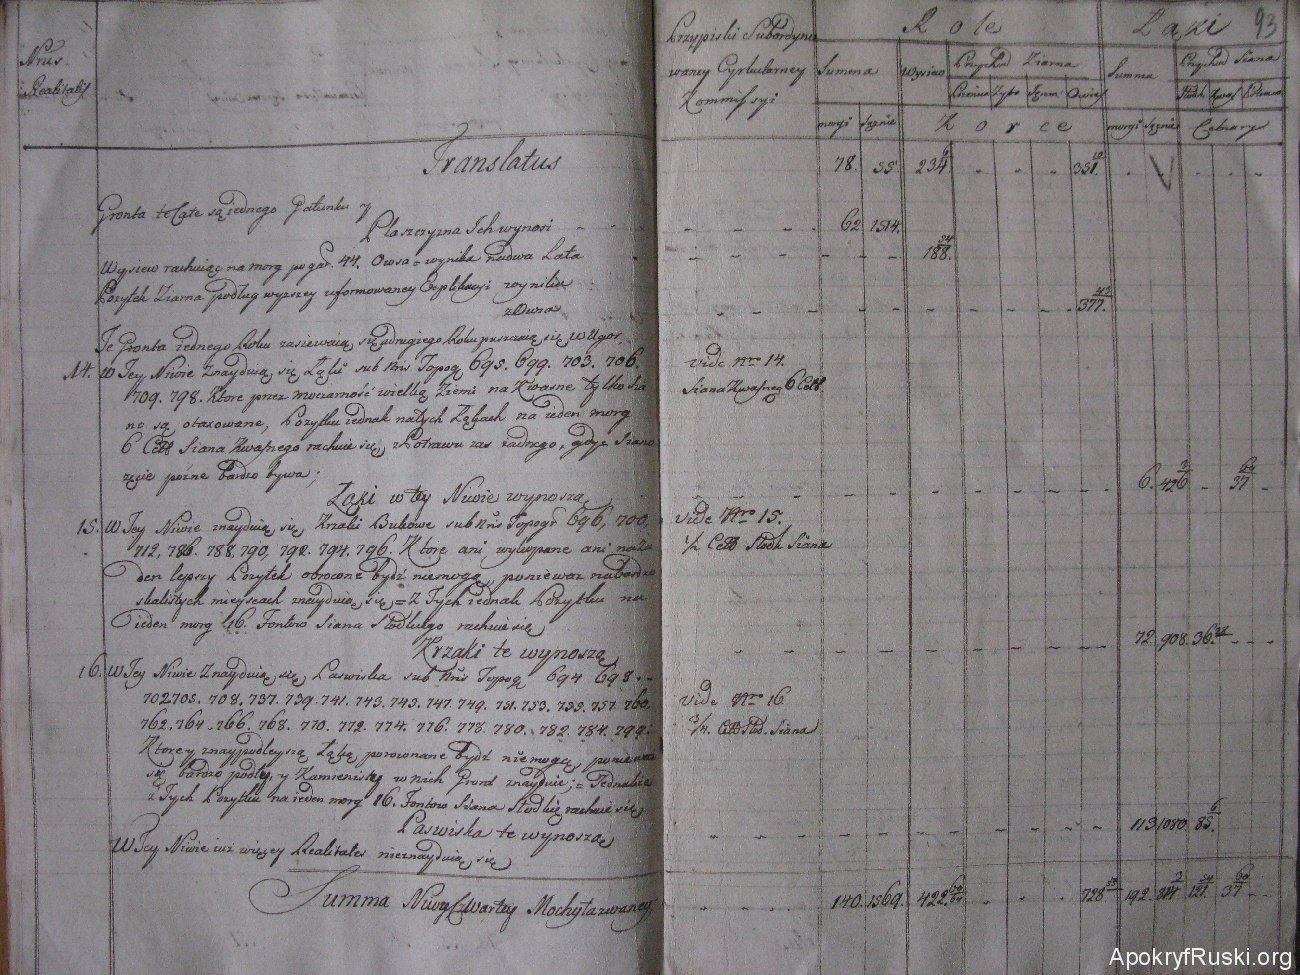 Nrus
Realitatis
Translatus
Gronta te Całe są iednego Gatunku y
Płaszczyzna Ich wynosi
Wysiew rachuiąc na morg po gar. 44. Owsa = wynika na dwa Lata
Pożytek Ziarna podług wyższey uformowaney Explikacyi wynika
z Owsa
Te Gronta iednego Roku zasiewaią się a drugiego Roku puszczaią się w Ugor,
14. W Tey Niwie Znayduią się Łąki sub Nris Topog. 695. 699. 703. 706.
709. 798. Ktore przez moczarność wielką Ziemi na Kwasne tylko Sia
no są otaxowane, Pożytku iednak na tych Łąkach na ieden morg
6 Cett Siana Kwasnego rachuie się, Potrawu zas żadnego, gdyż Siano
żęcie pozne bardzo bywa;
Łąki w tey Niwie wynoszą
15. W Tey Niwie znayduią się Krzaki Bukowe sub Nris Topogr. 696, 700,
712, 786. 788, 790, 792. 794. 796. Ktore ani wykopane ani na ża
den lepszy Pożytek obrocone bydź niemogą, poniewaz na bardzo
skalistych mieyscach znayduią się = z Tych iednak Pożytku na
ieden morg 16. Fontow Siana Słodkiego rachuie się
Krzaki te wynoszą
16. W Tey Niwie Znayduią się Pastwiska sub Nris Topog. 694 698.
702 705. 708. 737. 739. 741. 743. 745. 747. 749. 751. 753. 755. 757. 760.
762. 764. 766. 768. 770. 772. 774. 776. 778. 780. 782. 784. 799.
Ktore y z naypodleyszą Łąką porownane bydź niemogą, poniewaz
się bardzo podły y Kamienisty w nich Gront znayduie; = Jednakże
z Tych Pożytku na ieden morg 16. Fontow Siana Słodkie rachuie się
Paswiska te wynoszą
W Tey Niwie iuż więcey Realitates nieznayduią się
Summa Niwy Czwartey Mochnatawaney
93
Przypiski Subordyno
waney Cyrkularney
Kommissyi
Role
Łąki
Summa
Wysiew
Przychod Ziarna
Summa
Przychod Siana
Pszenica Żyto Jęczm. Owies
Słodk Kwas Potrawu
morgi Sążnie
Korce
morgi Sążnie
Cetnary
78. 55 234 6 351 10
62 1514.
188. 54
377. 43
vide nro 14.
Siana Kwasnego 6 Cett
6. 426 3 37 60
vide Nro 15.
1/2 Cett Słodk Siana
72. 908. 36. 28
vide Nro 16
3/4. Cett Słod. Siana
113 1080. 85. 6
140. 1569. 422 60/64 728 53 192. 814 3 121. 34 37 60
ApokryfRuski.org